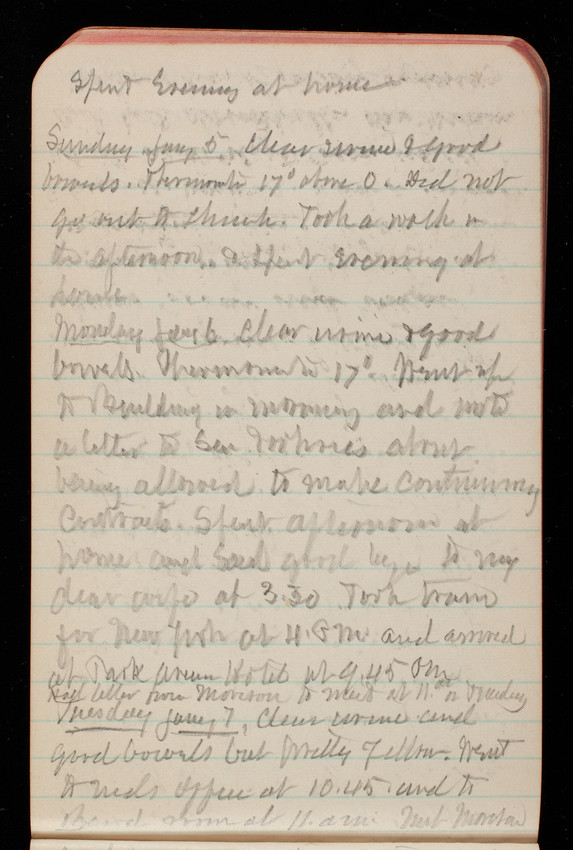 Spent Evening at home
Sunday Jany 5. Clear urine & good
bowels. Thermomtr 17° above 0. Did not
go out to church. Took a walk in
the afternoon. & Spent evening at
home.
Monday Jany 6. Clear urine & good
bowels. Thermomtr 17°. Went up
to Building in morning and wrote
a letter to Sen about
being allowed to make Continuing
Contracts. Spent afternoon at
home and Said good bye to my
dear wife at 3.30 Took train
for New York at 4. P.M. and arrived
at Park Avenue Hotel at 9.45 P.M.
Had letter from Morrison to meet at 11. on Tuesday
Tuesday Jany 7, Clear urine and
good bowels but pretty yellow. Went
to office at 10.45 and to
Board room at 11. a.m. Met Morrison